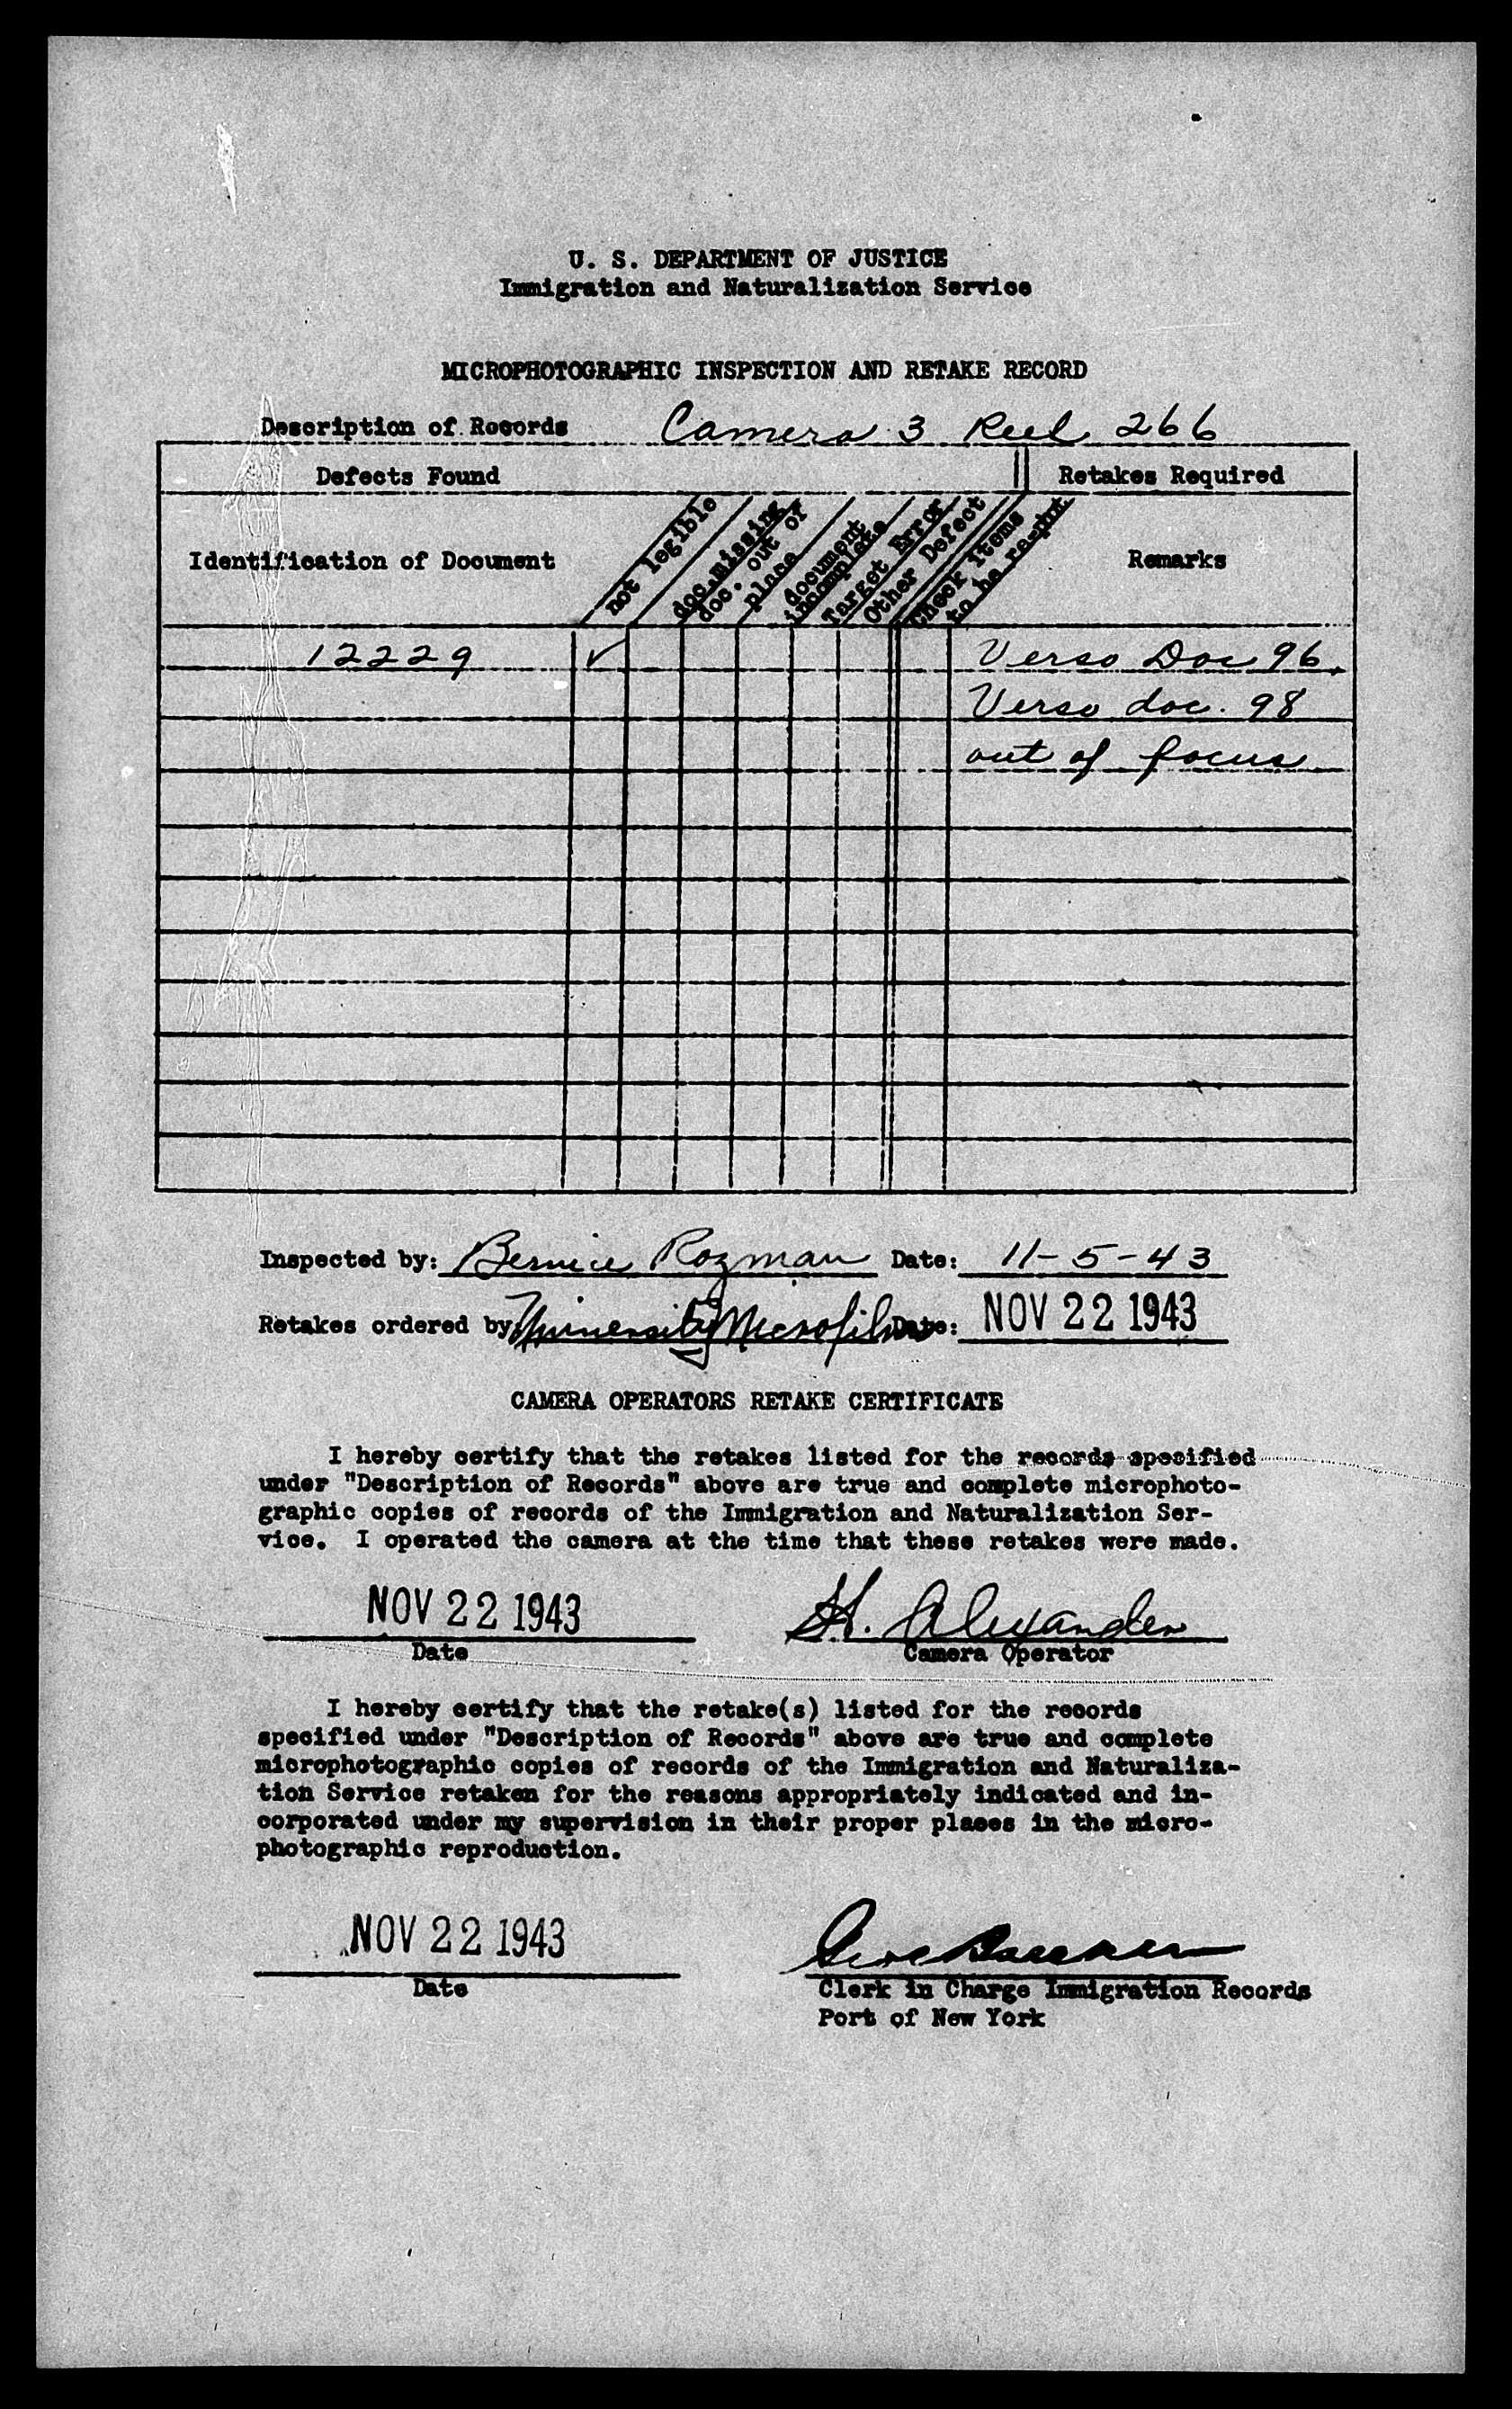 U. S. DEPARTMENT OF JUSTICE
Immigration and Naturalization Service
MICROPHOTOGRAPHIC INSPECTION AND RETAKE RECORD
Description of Records Camera 3 Reel 266
Defects Found Retakes Required
Identification of Document not legible doc. missing doc. out of place document incomplete Target Error Other Defect Check items to be re-pht Remarks
12229 ✓ Verso Doc 96.
Verso doc. 98
out of focus
Inspected by: Bernice Rozman Date: 11-5-43
Retakes ordered by University Microfilms Date: NOV 22 1943
CAMERA OPERATORS RETAKE CERTIFICATE
I hereby certify that the retakes listed for the records specified
under "Description of Records" above are true and complete microphoto-
graphic copies of records of the Immigration and Naturalization Ser-
vice. I operated the camera at the time that these retakes were made.
NOV 22 1943 H. Alexander
Date Camera Operator
I hereby certify that the retake(s) listed for the records
specified under "Description of Records" above are true and complete
microphotographic copies of records of the Immigration and Naturaliza-
tion Service retaken for the reasons appropriately indicated and in-
corporated under my supervision in their proper places in the micro-
photographic reproduction.
NOV 22 1943
Date Clerk in Charge Immigration Records
Port of New York